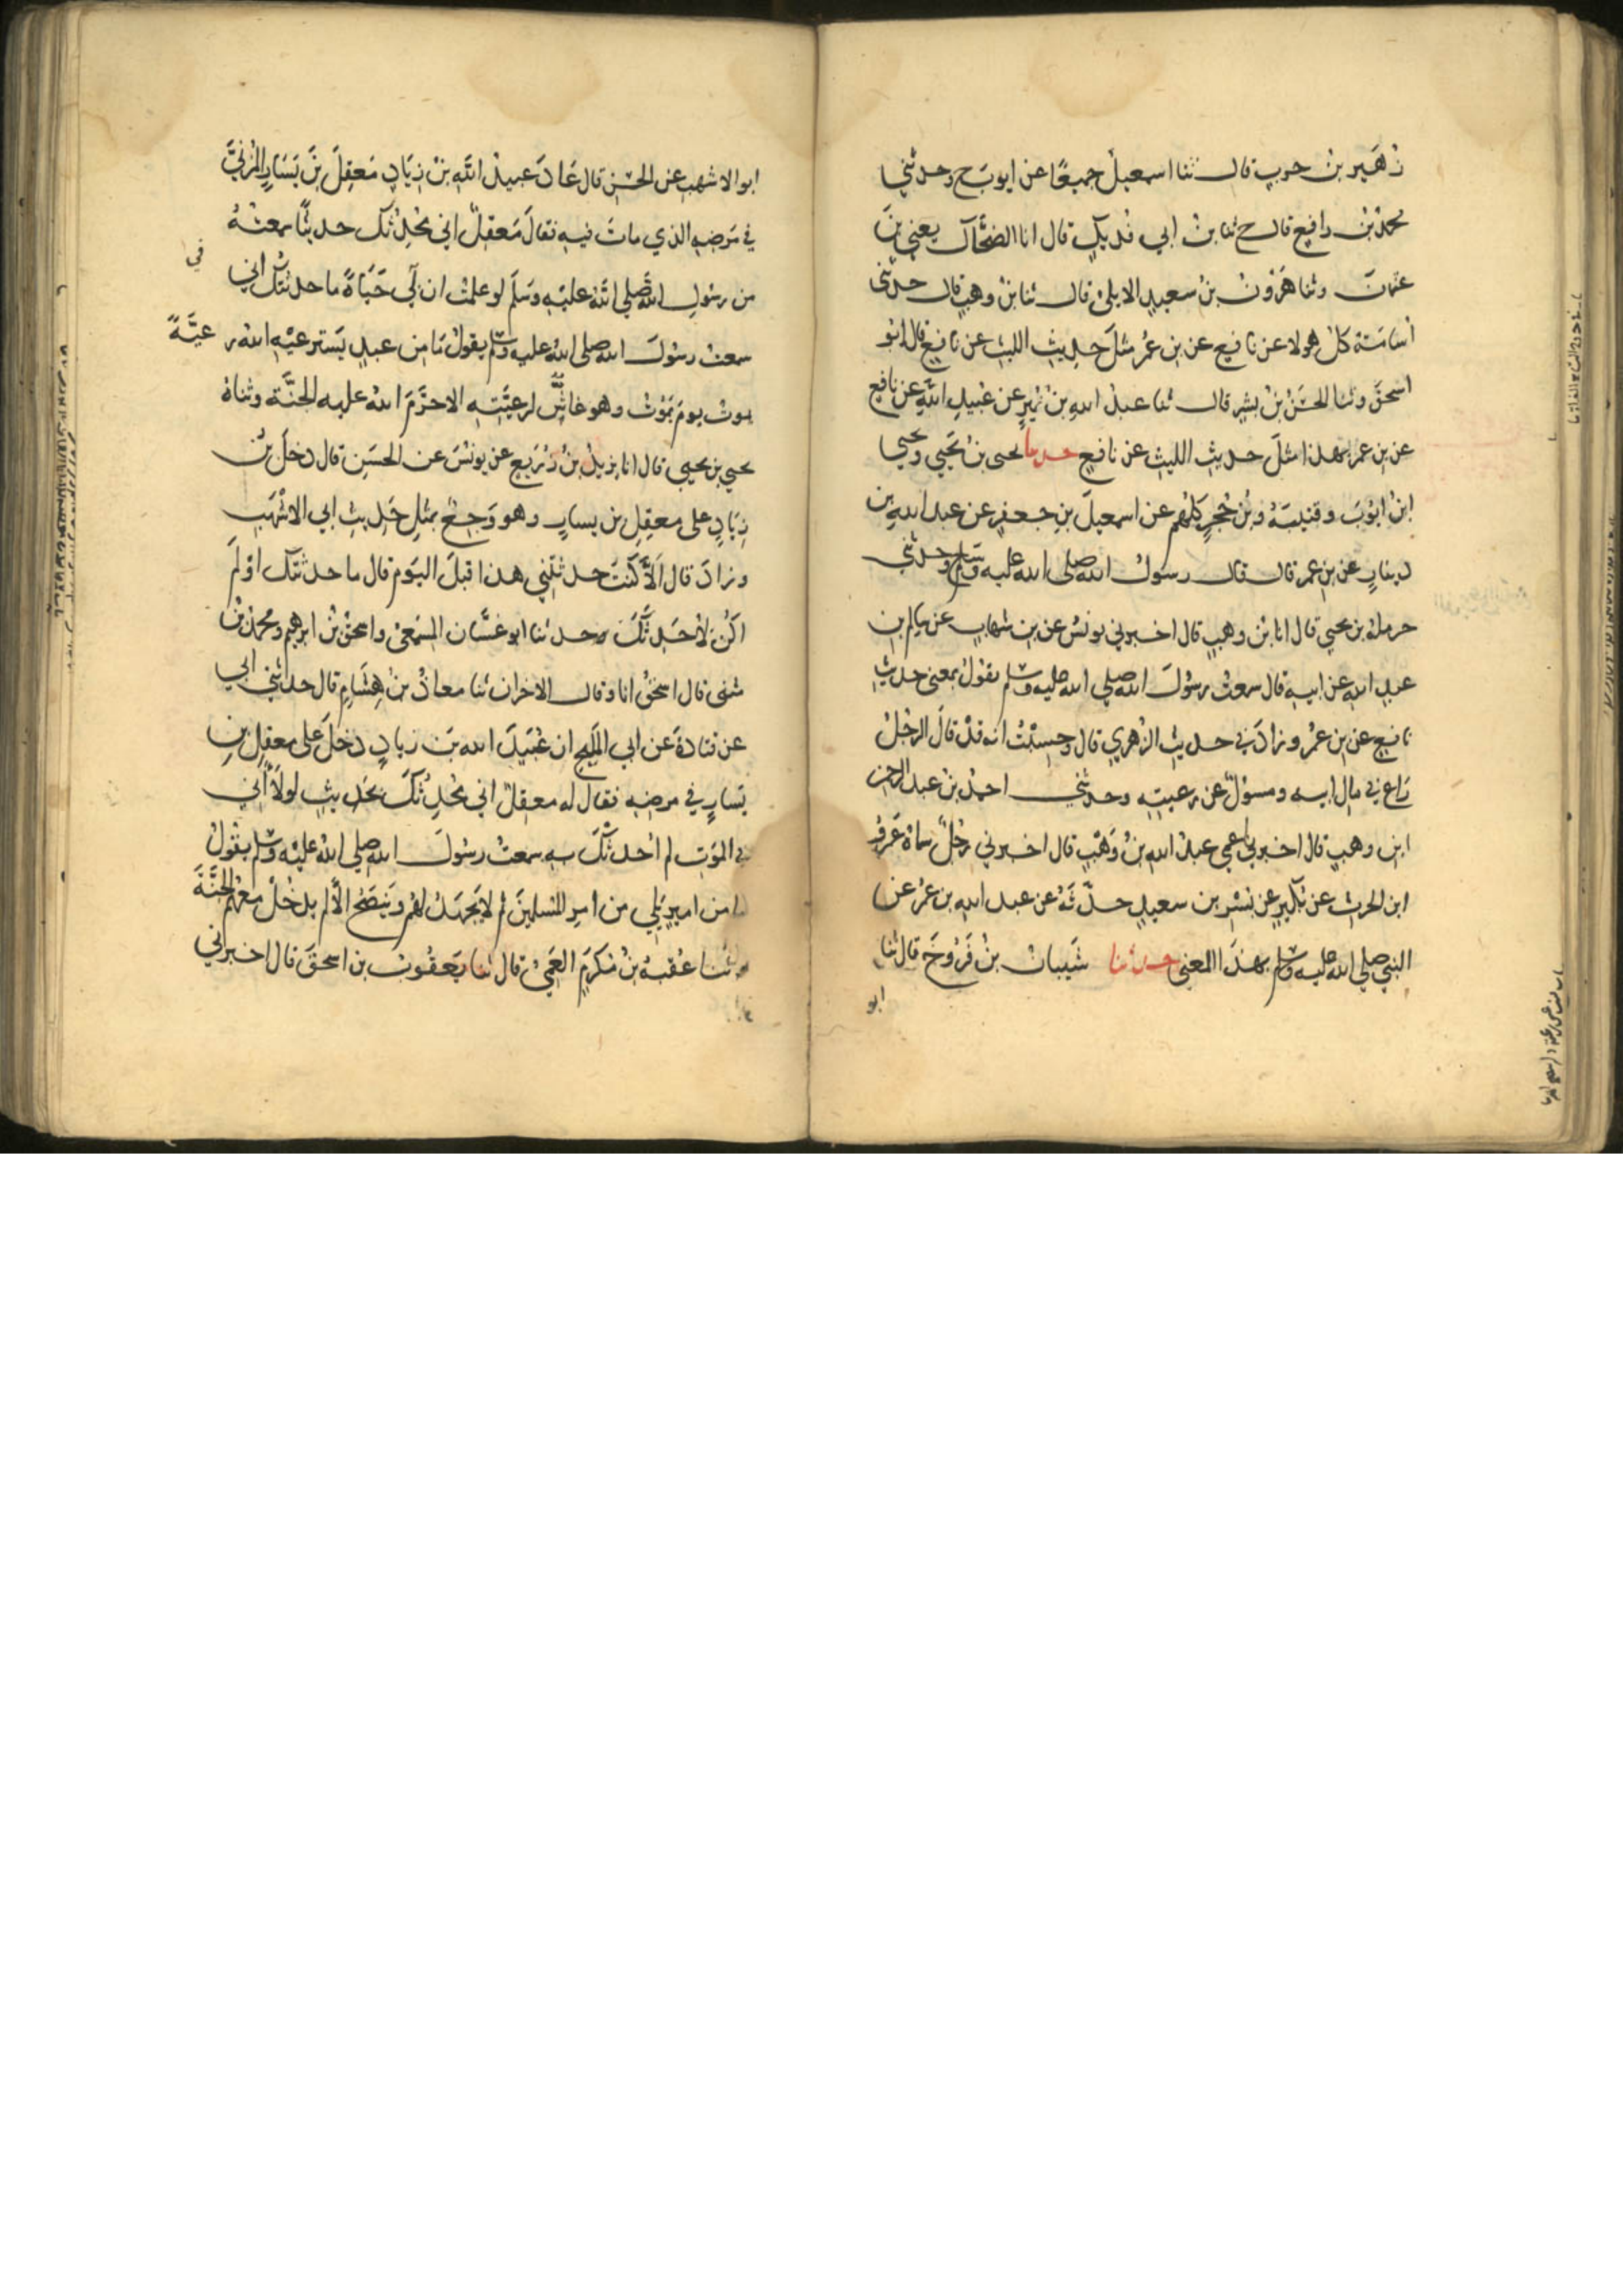 زُهَير بنُ حرب قال ثنا اسمعيلُ جميعًا عن ايوبَ ح وحدثني
محمدُ بنُ رافع قال ثنا بنُ ابي فُديكٍ قال انا الضحَّاكُ يعني بنَ
عثمانَ وثنا هَرُونُ بنُ سعيدٍ الايليُ قال ثنا بنُ وهبٍ قال حدثني
أسامَةُ كلُ هولا عن نافعٍ عن بنِ عُمرَ مثلَ حديثِ الليثِ عن نافعٍ قال ابو
اسحقَ وثنا الحسَنُ بنُ بشرٍ قال ثنا عبدُ اللهِ بنُ نُميرٍ عن عُبيدِ اللهِ عن نافعٍ
عن بنِ عمرَ بهذا مثلَ حديثِ الليثِ عن نافعٍ حدثنا يحيى بنُ يَحيي ويحيي
ابنُ ايوبَ وقتيبَةُ وبنُ حُجرٍ كلهم عن اسمعيلَ بنِ جعفرٍ عن عبدِ اللهِ بنِ
دينارٍ عن بنِ عمرَ قال قال رسولُ اللهِ صلى الله عليه وسلم وحدثني
حرملةُ بن يحيي قال انا بنُ وهبٍ قال اخبرني يونسُ عن بنِ شهابٍ عن سالمِ بنِ
عبدِ اللهِ عن ابيهِ قال سمعتُ رسُولَ اللهِ صلي الله عليه وسلم يقولُ بمعنى حديثِ
نافعٍ عن بنِ عمرَ وزادَ في حديثِ الزهري قال وحسِبْتُ انه قدْ قالَ الرجُلُ
رَاعٍ في مالِ ابيه ومسؤلٌ عن رعيتِهِ وحدثني احمدُ بنُ عبدِ الرحمنِ
ابنِ وهبٍ قال اخبرني عمي عبدُ اللهِ بنُ وَهْبٍ قال اخبرني رجُلٌ سماهُ عَمرُو
ابن الحرثِ عن بُكَيرٍ عن بُسْرِ بن سعيدٍ حدَّثَهُ عن عبدِ اللهِ بنِ عُمرَ عن
النبي صلي الله عليه وسلم بهذَا المعنى حدثنا شَيبانُ بنُ فَرُّوخَ قال ثنا
ابو
ابو الاشهبِ عن الحسَنِ قال عَادَ عبيدُ اللهِ بنُ زيَادٍ مَعقِلَ بنَ يَسَارِ المُزنيَّ
في مَرضِهِ الذي ماتَ فيهِ فقالَ مَعقِلٌ اني مُحَدِّثُكَ حديثًا سمعتُهُ
من رسُولِ اللهِ صَلى اللهُ عليْهِ وَسَلَّمَ لو علمتُ ان لي حَيَاةً ما حدثتُكَ اني
سمعتُ رسُولَ اللهِ صلى الله عليه وسلم يقولُ مَا مِن عبدٍ يَسترعيْهِ اللهُ رعيَّةً
يموتُ يومَ يَمُوتُ وهو غاشٌّ لرعيَّتِهِ الا حرَّمَ اللهُ عليه الجنَّةَ وثناهُ
يحيي بن يحيى قال انا يزيدُ بنُ زُرَيعٍ عن يونُسَ عن الحسَنِ قال دخلَ بنُ
زيَادٍ على معقِلِ بن يسارٍ وهو وَجِعٌ بمثلِ حَديثِ ابي الاشْهَبِ
وزادَ قال أَلاَّ كُنتَ حدثتَني هذا قبلَ اليَومِ قال ما حدثتُكَ اوْ لَم
اكُنْ لأُحَدِّثَكَ وحدثنا ابو غسَّان المِسْمَعيُ واسحقُ بنُ ابرهيم ومحمدُ بنُ
مثنى قال اسحقُ انا وقال الاخران ثنا معاذُ بنُ هِشَامٍ قال حدثني ابي
عن قتادةَ عن ابي المَلِيحِ ان عُبَيدَ اللهِ بنَ زيادٍ دخلَ على معقِلِ بنِ
يَسارٍ في مرضِهِ فقال له معقِلٌ اني مُحَدِّثُكَ بحَديثٍ لولا أَني
في المَوْتِ لم أُحدثْكَ بهِ سمعتُ رسُولَ اللهِ صلي اللهُ عليْهِ وسلم يقُولُ
ما من اميرٍ يَلي من امرِ المُسلمِينَ ثم لا يَجهَدُ لهم ويَنصَحُ الاَّ لم يدخُلْ معَهُم الجنَّةَ
وحدثنا عُقبَةُ بنُ مُكرَمٍ العَمِّيُ قال ثنا يَعقُوبُ بن اسحقَ قال اخبرني